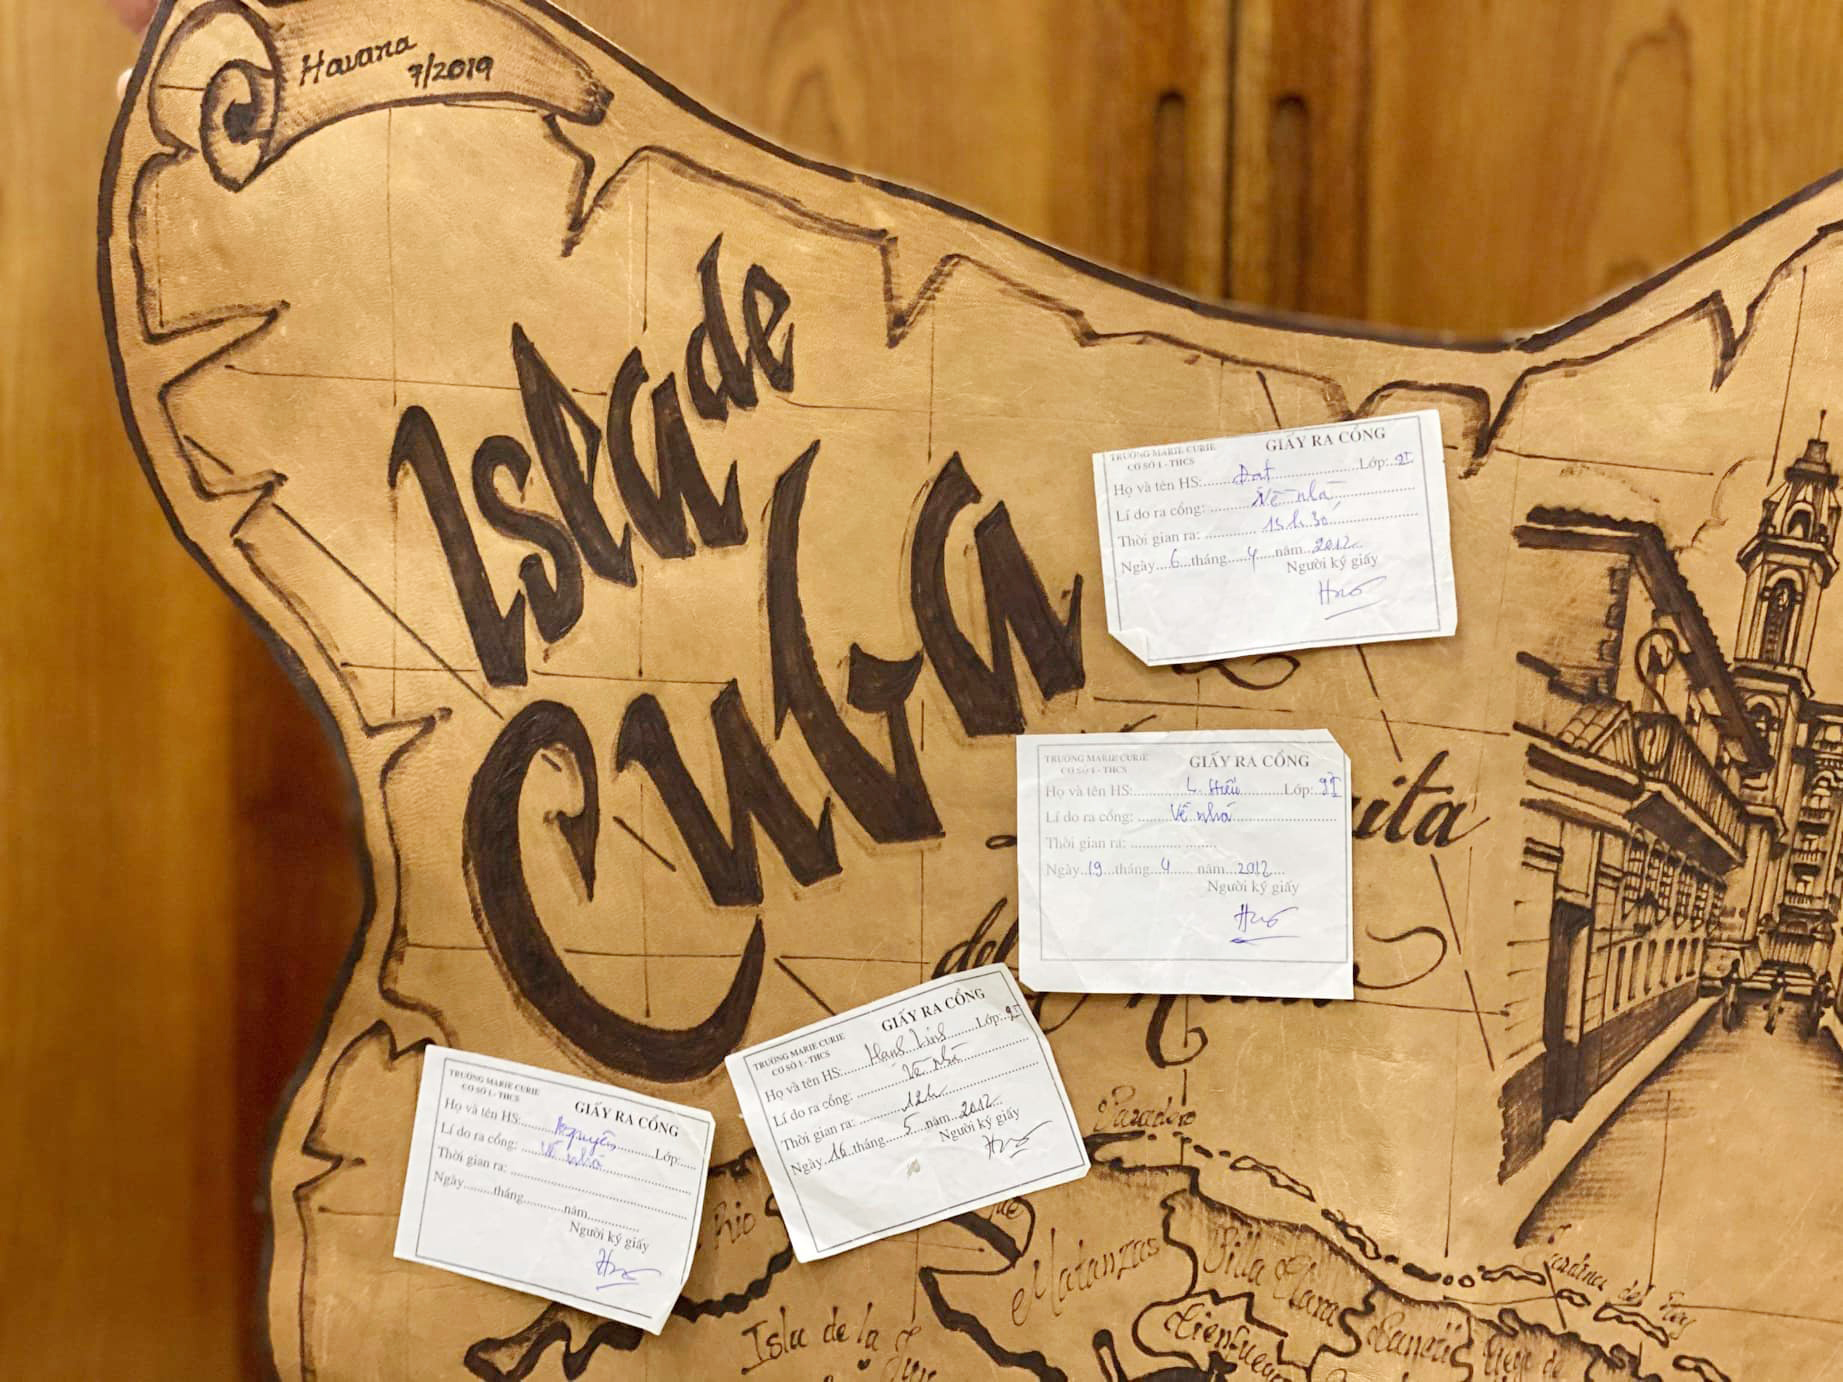 Havana
7/2019
Isla de
Cuba
TRƯỜNG MARIE CURIE
CƠ SỞ I - THCS
GIẤY RA CỔNG
Họ và tên HS: Đạt Lớp: 9I
Lí do ra cổng: Về nhà
Thời gian ra: 15h30
Ngày 6 tháng 4 năm 2012
Người ký giấy
TRƯỜNG MARIE CURIE
CƠ SỞ I - THCS
GIẤY RA CỔNG
Họ và tên HS: L. Hiếu Lớp: 9I
Lí do ra cổng: Về nhà
Thời gian ra:
Ngày 19 tháng 4 năm 2012
Người ký giấy
ita
del
TRƯỜNG MARIE CURIE
CƠ SỞ I - THCS
GIẤY RA CỔNG
Họ và tên HS: Lớp: 9I
Lí do ra cổng: Về nhà
Thời gian ra: 12h
Ngày 16 tháng 5 năm 2012
Người ký giấy
TRƯỜNG MARIE CURIE
CƠ SỞ I - THCS
GIẤY RA CỔNG
Họ và tên HS: Nguyên Lớp:
Lí do ra cổng: Về nhà
Thời gian ra:
Ngày tháng năm
Người ký giấy
Varadero
Rio
Matanzas
Villa Clara
Jardines del Rey
Isla de la
Cienfuegos